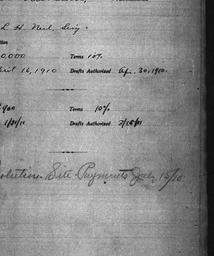 L. H. Neil, Secy
0,000 Terms 10%
April 16, 1910 Drafts Authorized Apr. 30, 1910.
Terms 10%
1/31/11 Drafts Authorized 2/15/11
Site Payments July 15/10